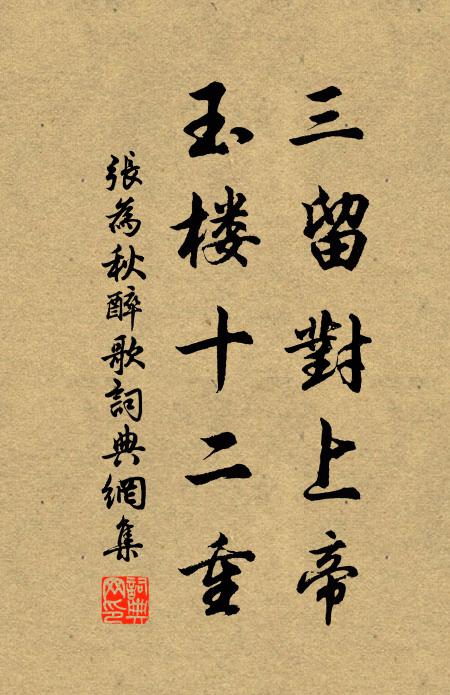 三留對上帝
玉楼十二重
張為秋醉歌詞典網集
詞典网印